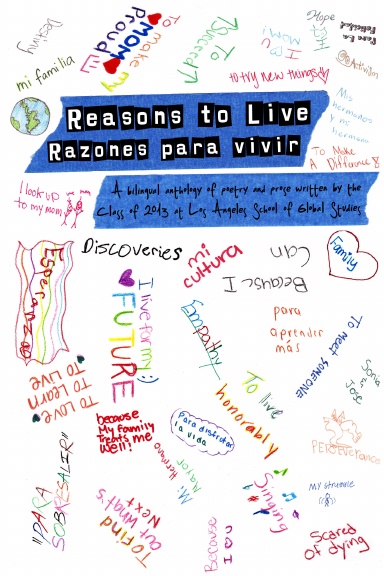 Destiny
mi familia
To make my
MOM
Proud
To
Succeed
I ♡ U
MOM!
Hope
Activism
to try new things
Mis
hermanos
y mi
hermana
To Make
A Difference
Reasons to Live
Razones para vivir
A bilingual anthology of poetry and prose written by the
Class of 2013 at Los Angeles School of Global Studies
I look up
to my mom
Discoveries
mi
cultura
Because I
Can
Family
Esperanza
I live for my
FUTURE
Happiness
para
aprender
más
To meet someone
Sonia
y
Jose
To Love
To Learn
To Live
because
My Family
Treats me
Well!
Para disfrutar
la vida
To live
honorably
Perseverance
"PARA
SOBRESALIR"
To find
out what's
Next
Mi
Hermano
Mayor
Because
I can
Singing
My struggle
Scared
of dying